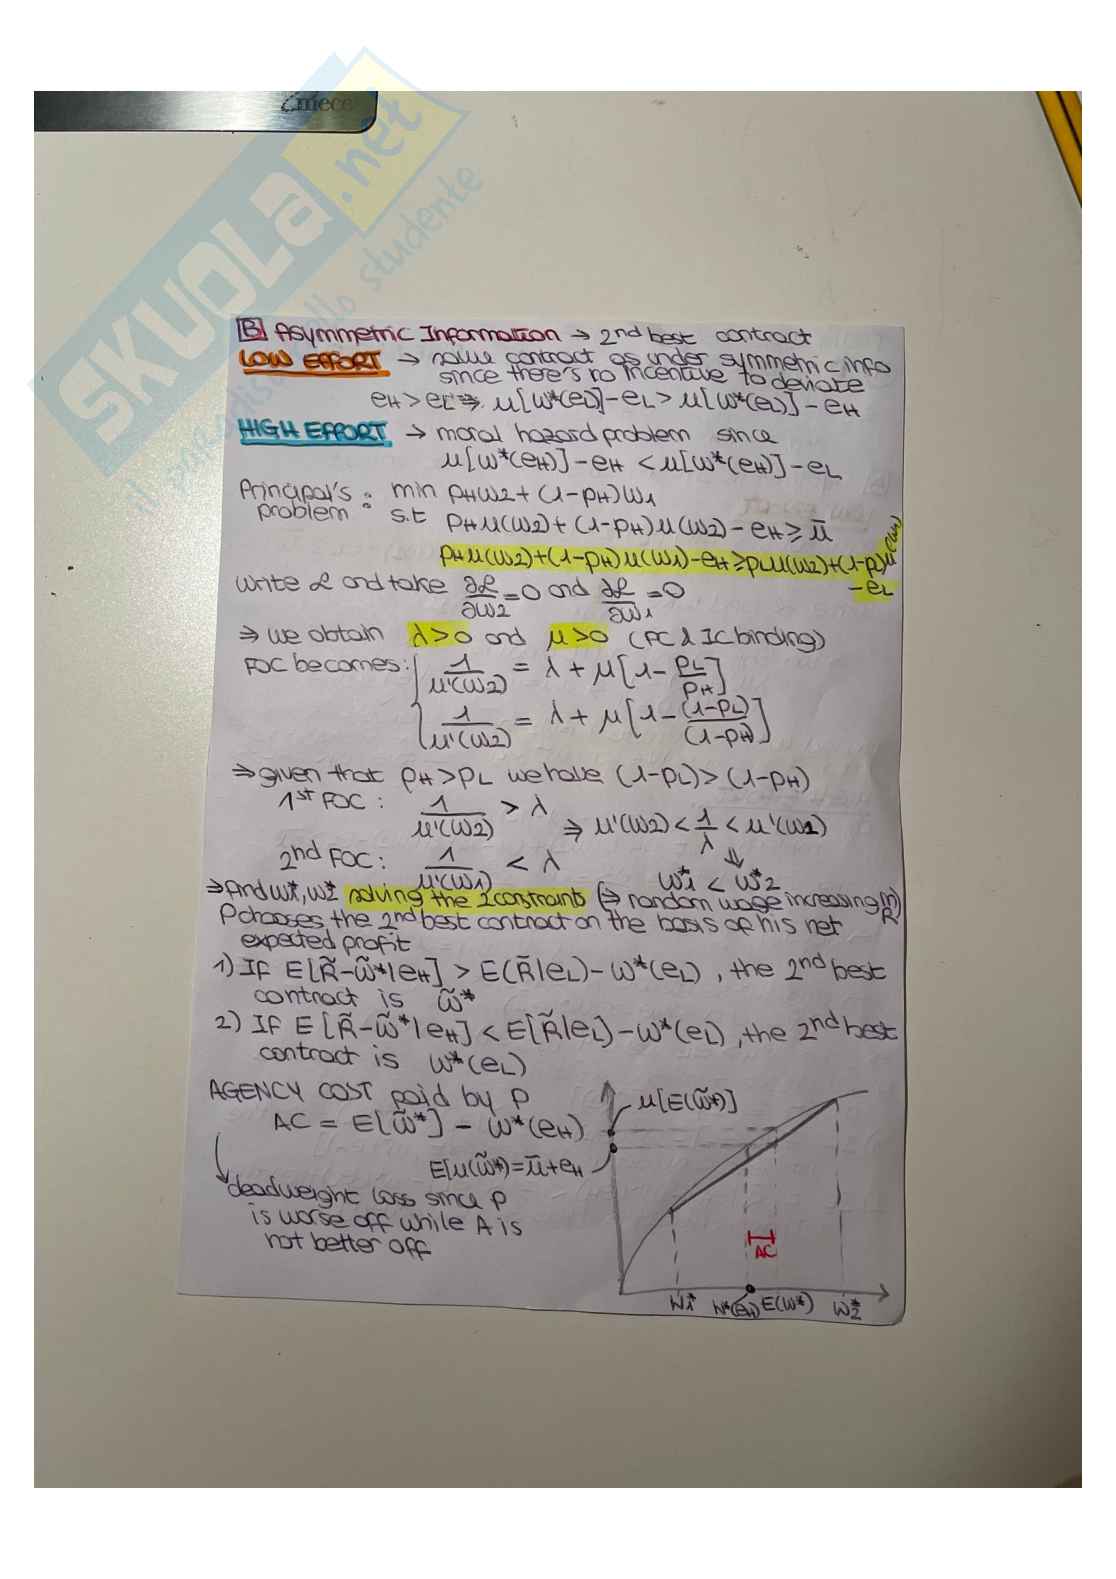 Zmece
SKUOLA.net
il paradiso dello studente
B Asymmetric Information → 2nd best contract
LOW EFFORT → solve contract as under symmetric info
since there's no incentive to deviate
eH > eL ⇒ u[w*(eL)] - eL > u[w*(eL)] - eH
HIGH EFFORT → moral hazard problem since
u[w*(eH)] - eH < u[w*(eH)] - eL
Principal's problem : min pHw2 + (1-pH)w1
s.t pHu(w2) + (1-pH)u(w2) - eH ≥ ū
pHu(w2) + (1-pH)u(w1) - eH ≥ pLu(w2) + (1-pL)u(w1)
- eL
write L and take ∂L/∂w2 = 0 and ∂L/∂w1 = 0
⇒ we obtain λ>0 and μ>0 (PC & IC binding)
FOC becomes: { 1/u'(w2) = λ + μ[1 - pL/pH]
{ 1/u'(w2) = λ + μ[1 - (1-pL)/(1-pH)]
⇒ given that pH > pL we have (1-pL) > (1-pH)
1st FOC: 1/u'(w2) > λ
⇒ u'(w2) < 1/λ < u'(w1)
2nd FOC: 1/u'(w1) < λ
⇓
w1* < w2*
⇒ find w1*, w2* solving the 2 constraints (⇒ random wage increasing in R)
P chooses the 2nd best contract on the basis of his net
expected profit
1) If E[R̃ - w̃*|eH] > E(R̃|eL) - w*(eL), the 2nd best
contract is w̃*
2) If E[R̃ - w̃*|eH] < E[R̃|eL) - w*(eL), the 2nd best
contract is w*(eL)
AGENCY COST paid by P
AC = E[w̃*] - w*(eH)
deadweight loss since P
is worse off while A is
not better off
u[E(w̃*)]
E[u(w̃*)] = ū + eH
AC
w1* w*(eH) E(w*) w2*